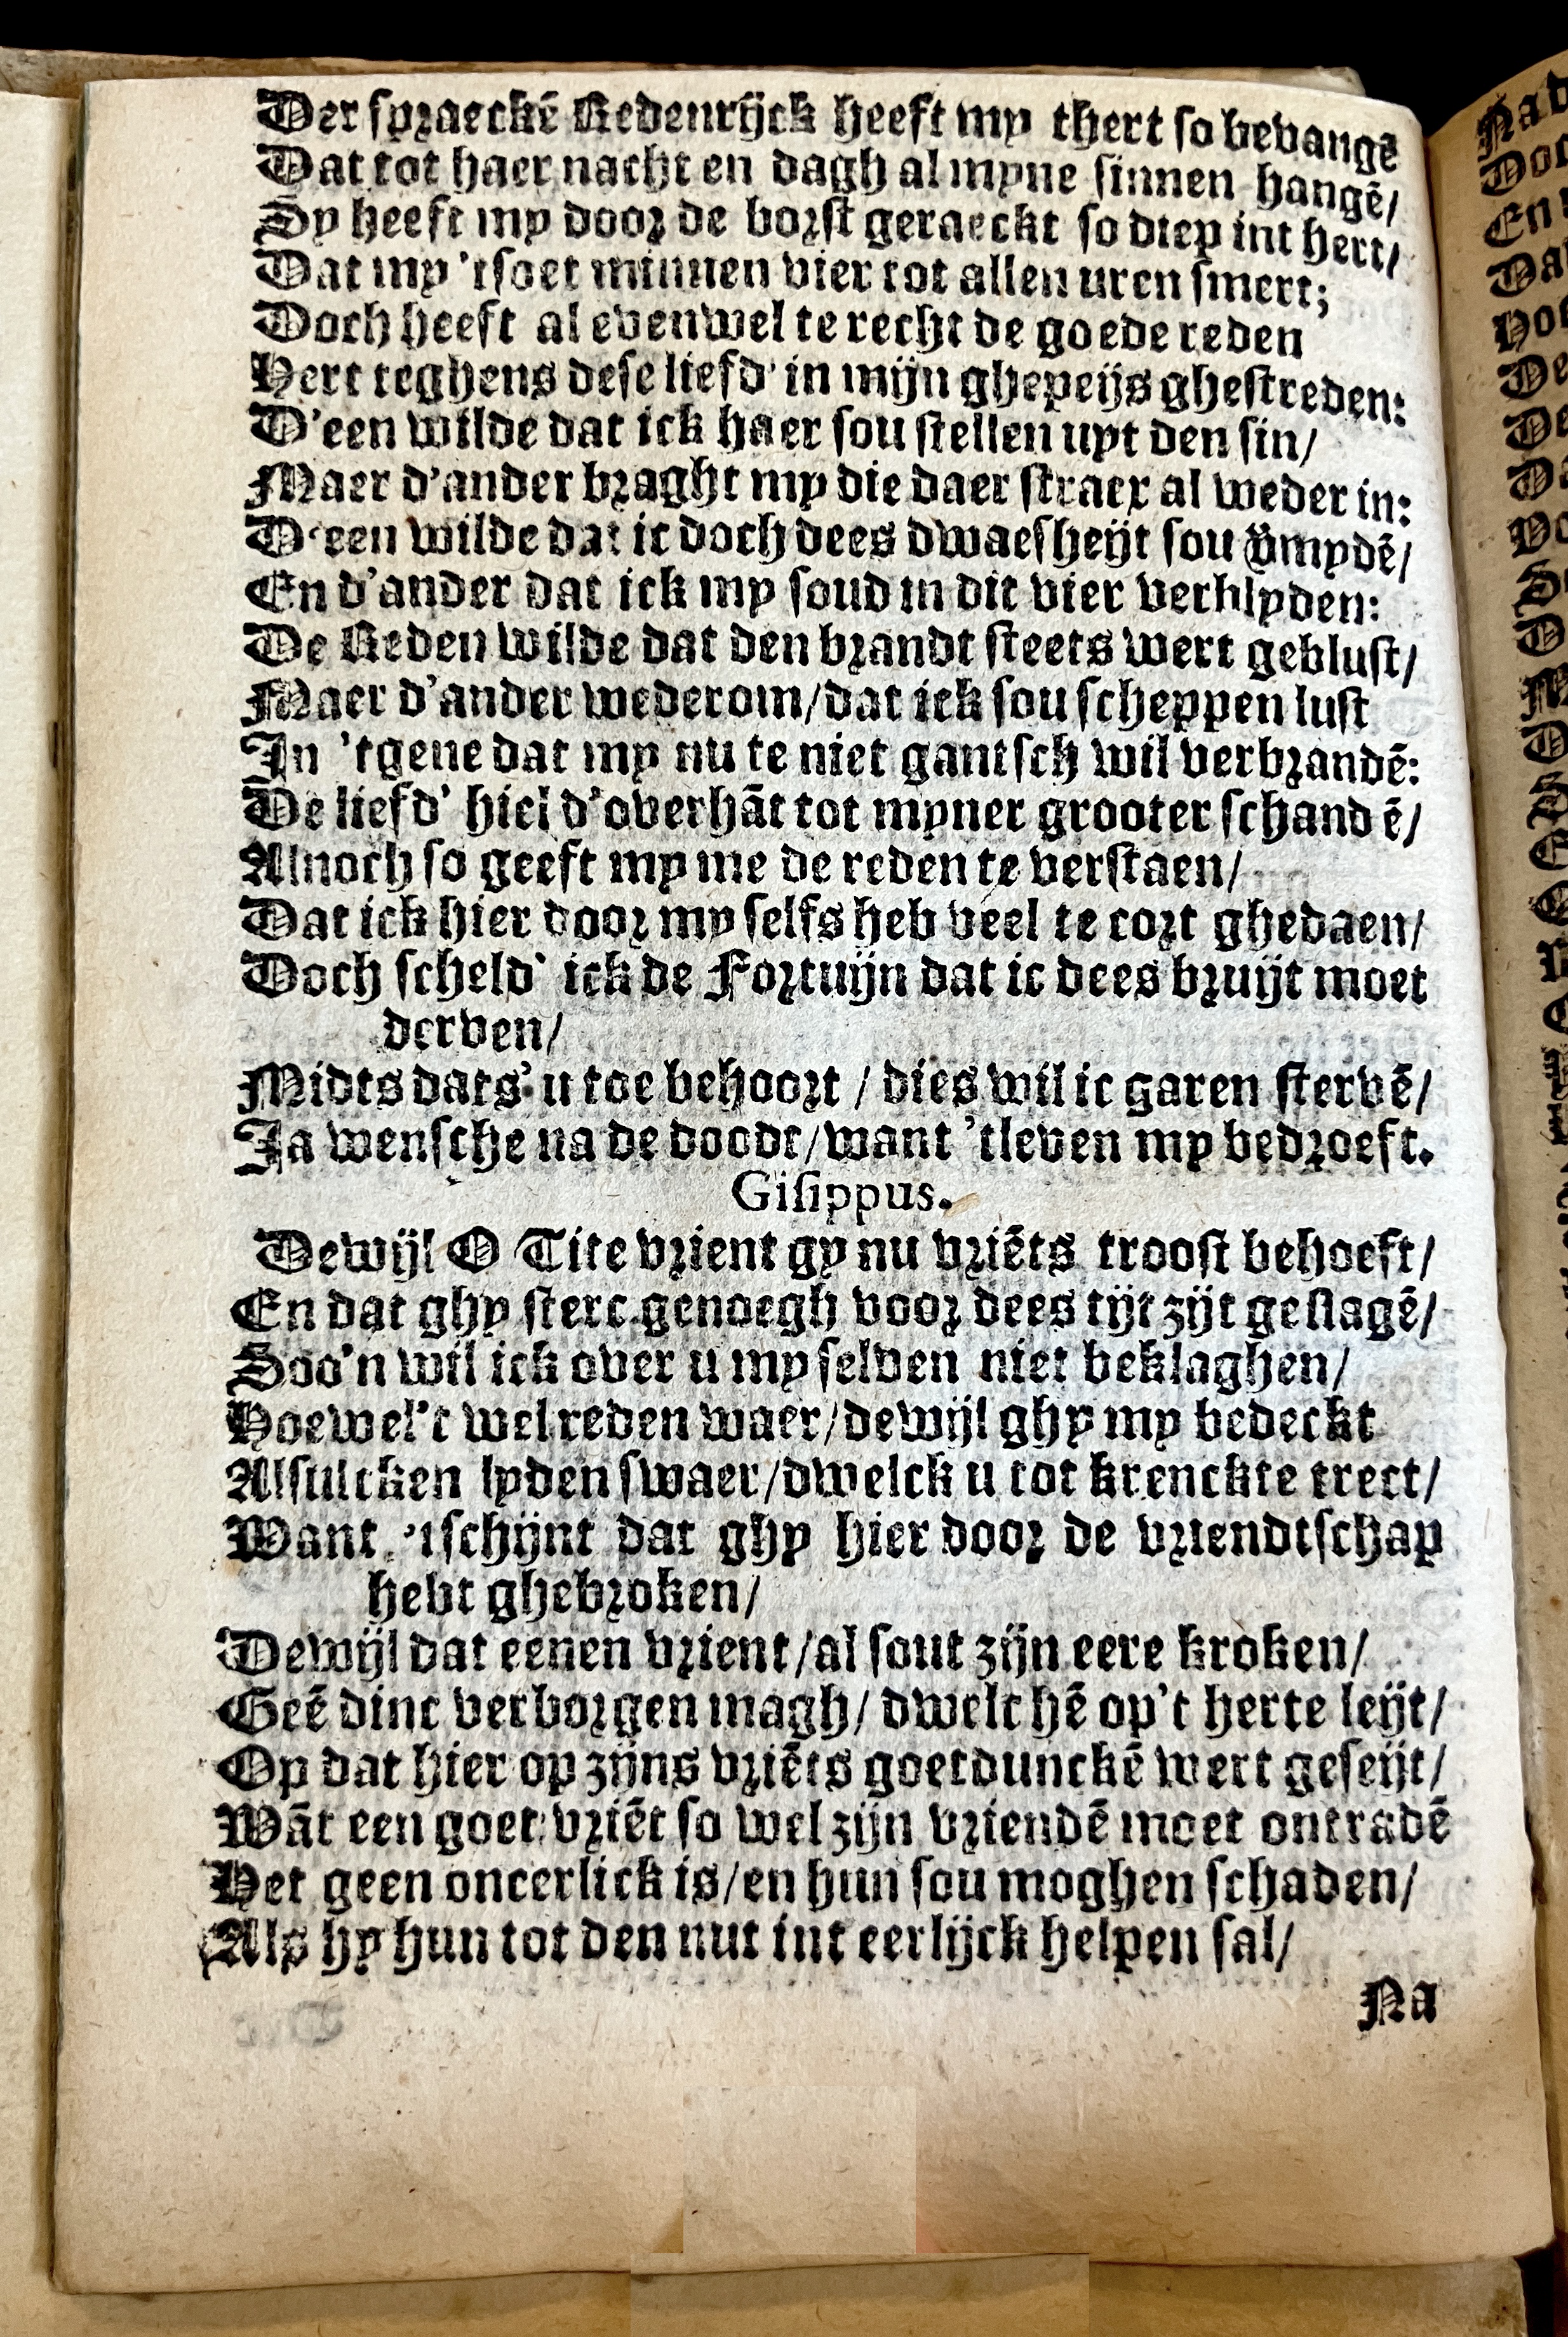 Der spraeckē Redenrijck heeft my thert so bevangē
Dat tot haer nacht en dagh al myne sinnen hangē/
Sy heeft my door de borst geraeckt so diep int hert/
Dat my 'tsoet minnen vier tot allen uren smert;
Doch heeft al evenwel te recht de goede reden
Hert teghens dese liefd' in mijn ghepeijs ghestreden:
D'een wilde dat ick haer sou stellen uyt den sin/
Maer d'ander braght my die daer straex al weder in:
D'een wilde dat ic doch dees dwaesheijt sou v̄mydē/
En d'ander dat ick my soud in dit vier verblyden:
De Reden wilde dat den brandt steets wert geblust/
Maer d'ander wederom/dat ick sou scheppen lust
In 'tgene dat my nu te niet gantsch wil verbrandē:
De liefd' hiel d'overhāt tot myner grooter schandē/
Alnoch so geeft my me de reden te verstaen/
Dat ick hier door my selfs heb veel te cort ghedaen/
Doch scheld' ick de Fortuijn dat ic dees bruijt moet
derven/
Midts dats' u toe behoort / dies wil ic garen stervē/
Ja wensche na de doodt/want 'tleven my bedroeft.
Gisippus.
Dewijl O Tite vrient gy nu vriēts troost behoeft/
En dat ghy sterc genoegh voor dees tijt zijt geslagē/
Soo'n wil ick over u my selven niet beklaghen/
Hoewel't wel reden waer/dewijl ghy my bedeckt
Alsulcken lyden swaer/dwelck u tot krenckte trect/
Want 'tschijnt dat ghy hier door de vriendtschap
hebt ghebroken/
Dewijl dat eenen vrient/al sout zijn eere kroken/
Geē dinc verborgen magh/ dwelc hē op't herte leijt/
Op dat hier op zijns vriēts goetdunckē wert geseijt/
Wāt een goet vriēt so wel zijn vriendē moet ontradē
Het geen oneerlick is/en hun sou moghen schaden/
Als hy hun tot den nut int eerlijck helpen sal/
Na